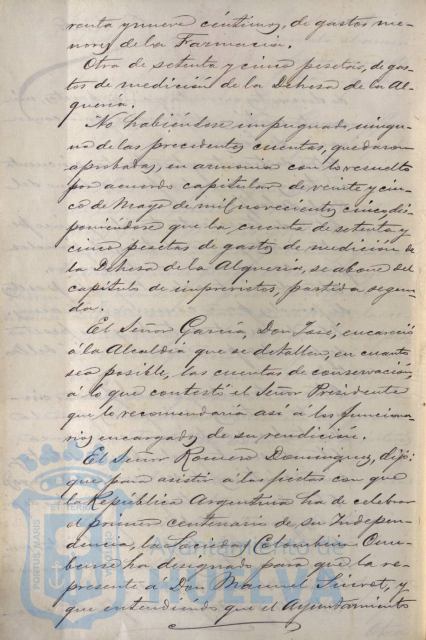 renta y nueve céntimos, de gastos me-
nores de la Farmacia.
Otra de setenta y cinco pesetas, de gas-
tos de medición de la Dehesa de la Al-
quería.
No habiéndose impugnado ningu-
na de las precedentes cuentas, quedaron
aprobadas, en armonía con lo resuelto
por acuerdo capitular de veinte y cin-
co de Mayo de mil novecientos cinco, dis-
poniéndose que la cuenta de setenta y
cinco pesetas de gastos de medición de
la Dehesa de la Alquería, se abone del
capítulo de imprevistos, partida segun-
da.
El Señor García, Don José, encareció
á la Alcaldía que se detallen, en cuanto
sea posible, las cuentas de conservación,
á lo que contestó el Señor Presidente
que lo recomendaría así á los funciona-
rios encargados de su rendición.
El Señor Romero Dominguez, dijo:
que para asistir á las fiestas con que
la República Argentina ha de celebrar
el primer centenario de su Indepen-
dencia, la Sociedad Colombina Onu-
bense ha designado para que la re-
presente á Don Manuel Siurot, y
que entendiendo que el Ayuntamiento
Ayuntamiento de
HUELVA
PORTUS MARIS